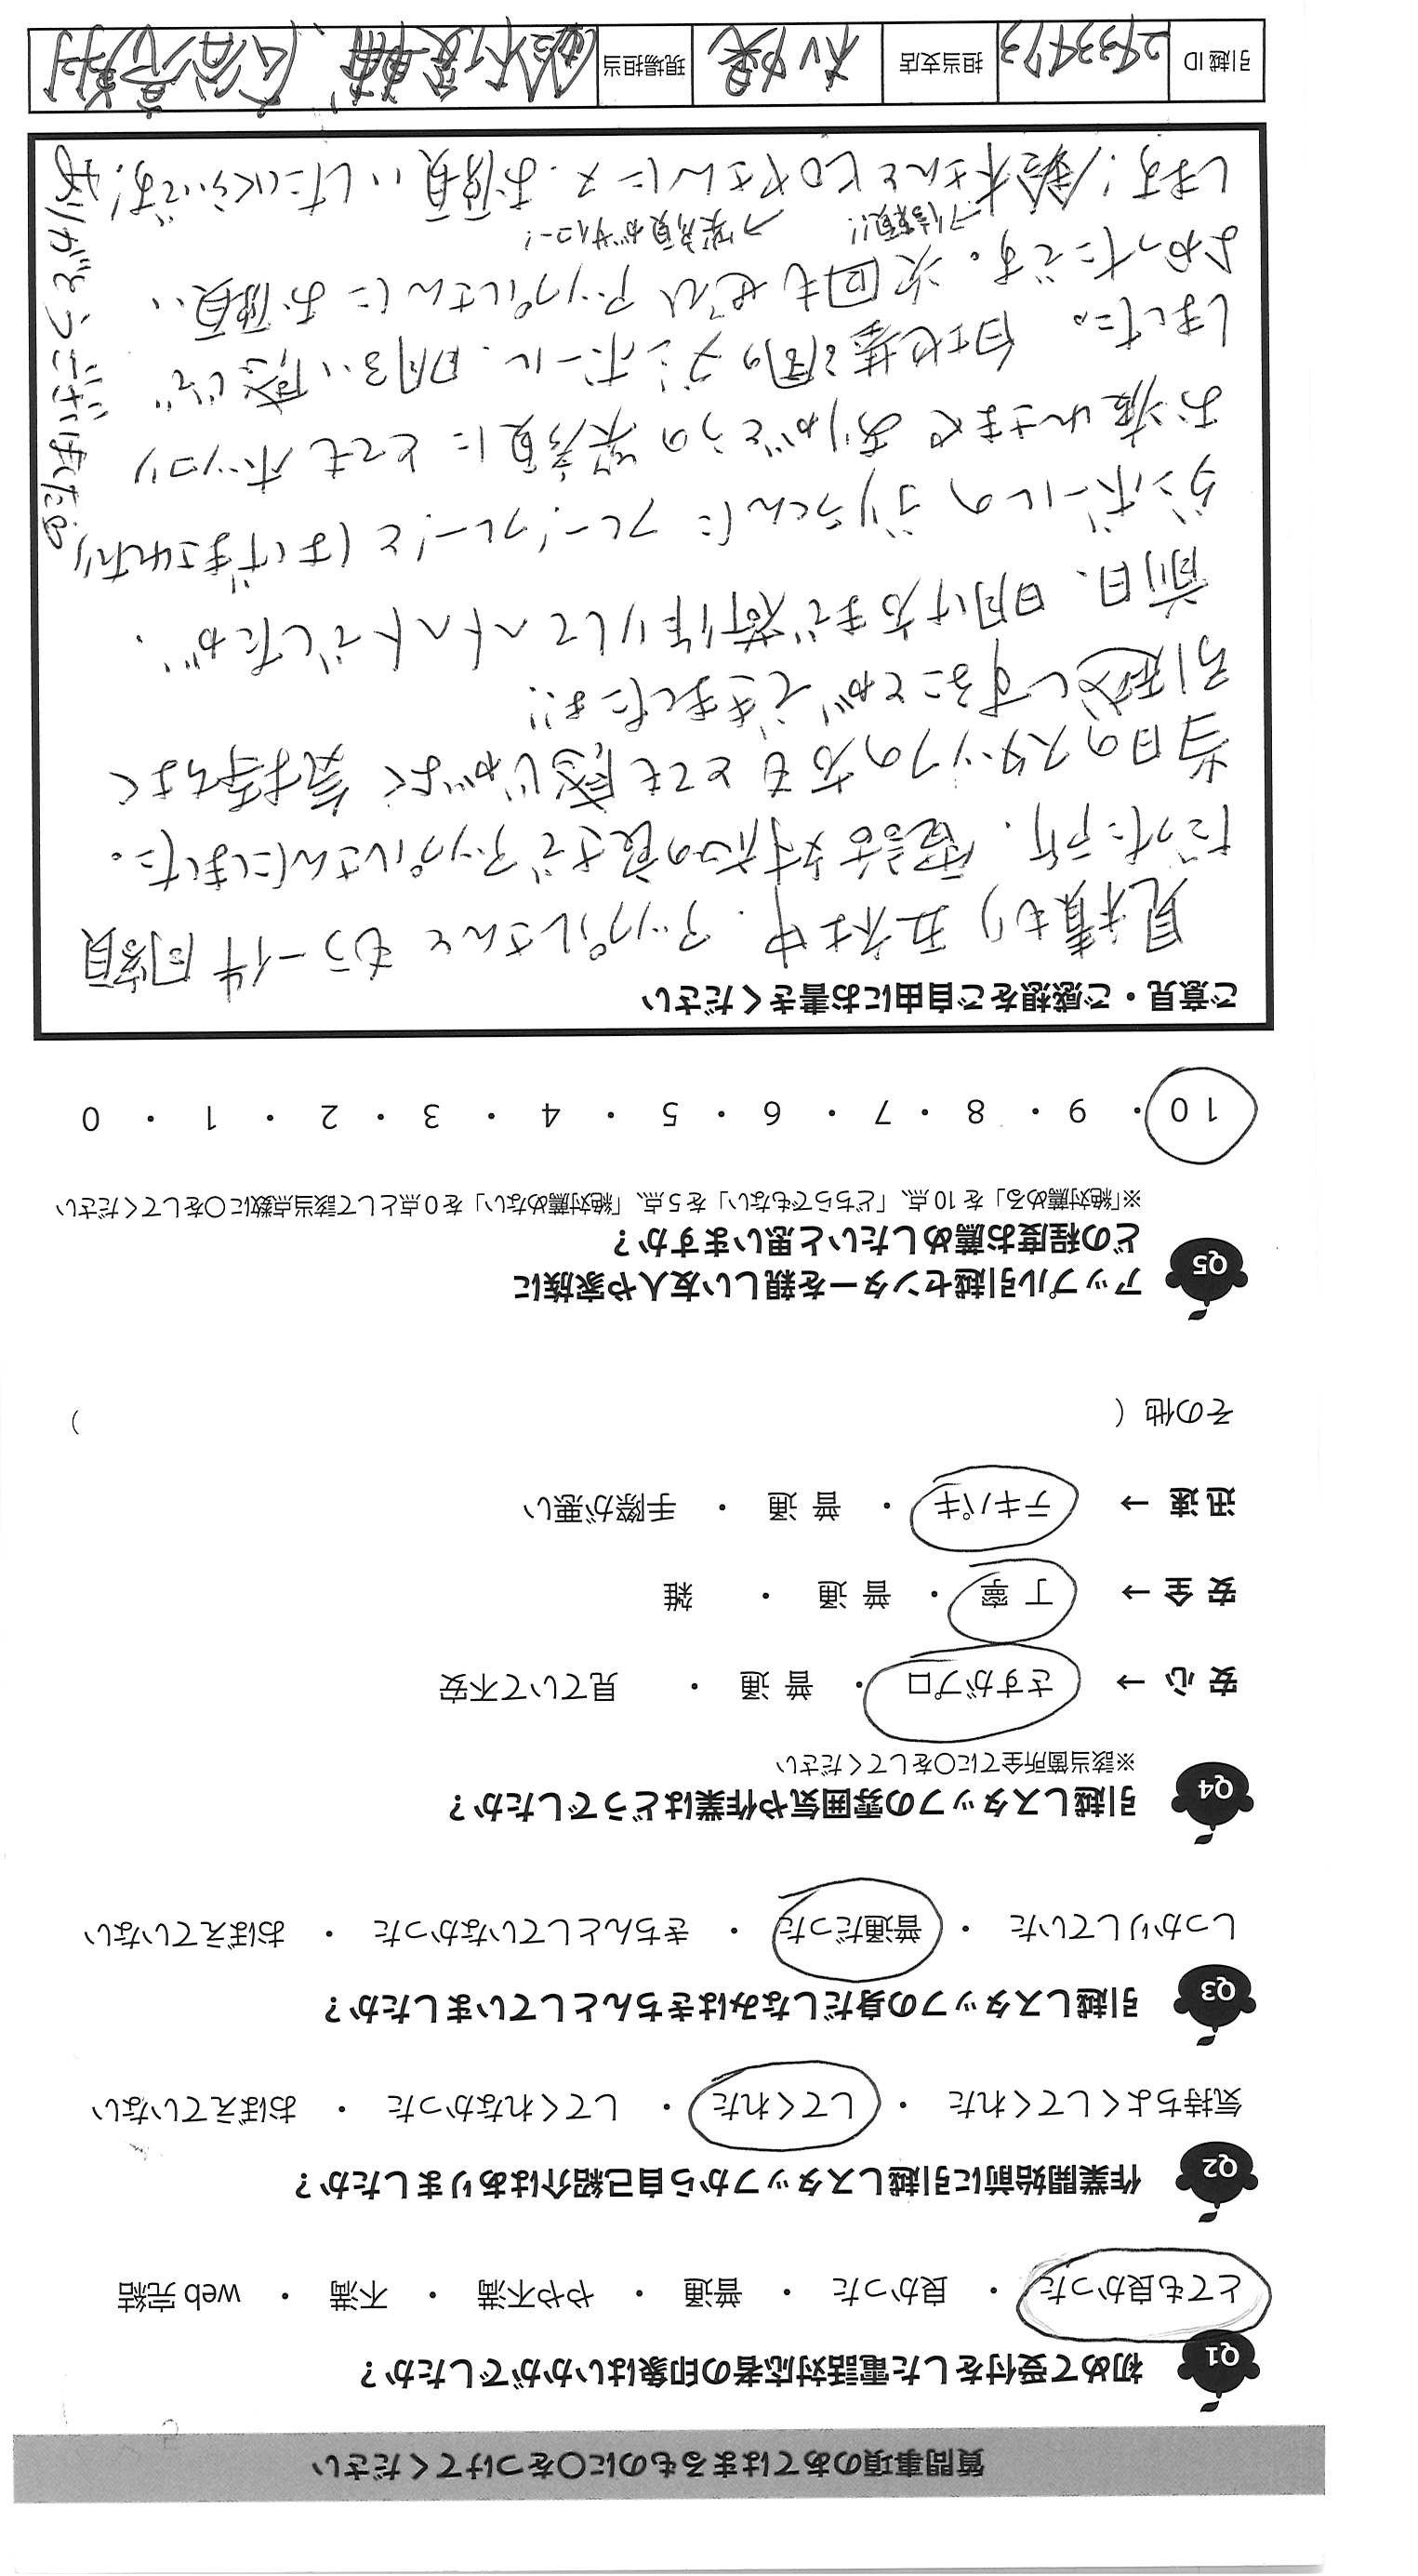 質問事項のあてはまるものに〇をつけてください
Q1 初めて受付をした電話対応者の印象はいかがでしたか？
とても良かった ・ 良かった ・ 普通 ・ やや不満 ・ 不満 ・ web 完結
Q2 作業開始前に引越しスタッフから自己紹介はありましたか？
気持ちよくしてくれた ・ してくれた ・ してくれなかった ・ おぼえていない
Q3 引越しスタッフの身だしなみはきちんとしていましたか？
しっかりしていた ・ 普通だった ・ きちんとしていなかった ・ おぼえていない
Q4 引越しスタッフの雰囲気や作業はどうでしたか？
※該当箇所全てに〇をしてください
安 心 → さすがプロ ・ 普 通 ・ 見ていて不安
安 全 → 丁 寧 ・ 普 通 ・ 雑
迅 速 → テキパキ ・ 普 通 ・ 手際が悪い
その他（ ）
Q5 アップル引越センターを親しい友人や家族に
どの程度お薦めしたいと思いますか？
※「絶対薦める」を 10 点、「どちらでもない」を 5 点、「絶対薦めない」を 0 点として該当点数に〇をしてください
10 ・ 9 ・ 8 ・ 7 ・ 6 ・ 5 ・ 4 ・ 3 ・ 2 ・ 1 ・ 0
ご意見・ご感想をご自由にお書きください
見積もり五社中、アップルさんともう一件同額
だった所、電話対応の良さでアップルさんにしました。
当日のスタッフの方もとても感じがよく気持ちよく
引越しすることができましたよ!!
前日、明け方まで荷作りしてヘトヘトでしたが、
ダンボールのゴリラくんにフレー！フレー！とはげまされたり
お疲れさまやありがとうの笑顔にとてもホッコリ
しました。 自社基調のダンボール、明るい感じで
よかったです。次回もぜひアップルさんにお願い
します！鈴木さんとヒロヤさんにヌ、お願いしたいくらいです！
信頼!! 笑顔がサイコー！
ありがとうございました
引越 ID 2433473 担当支店 現場担当